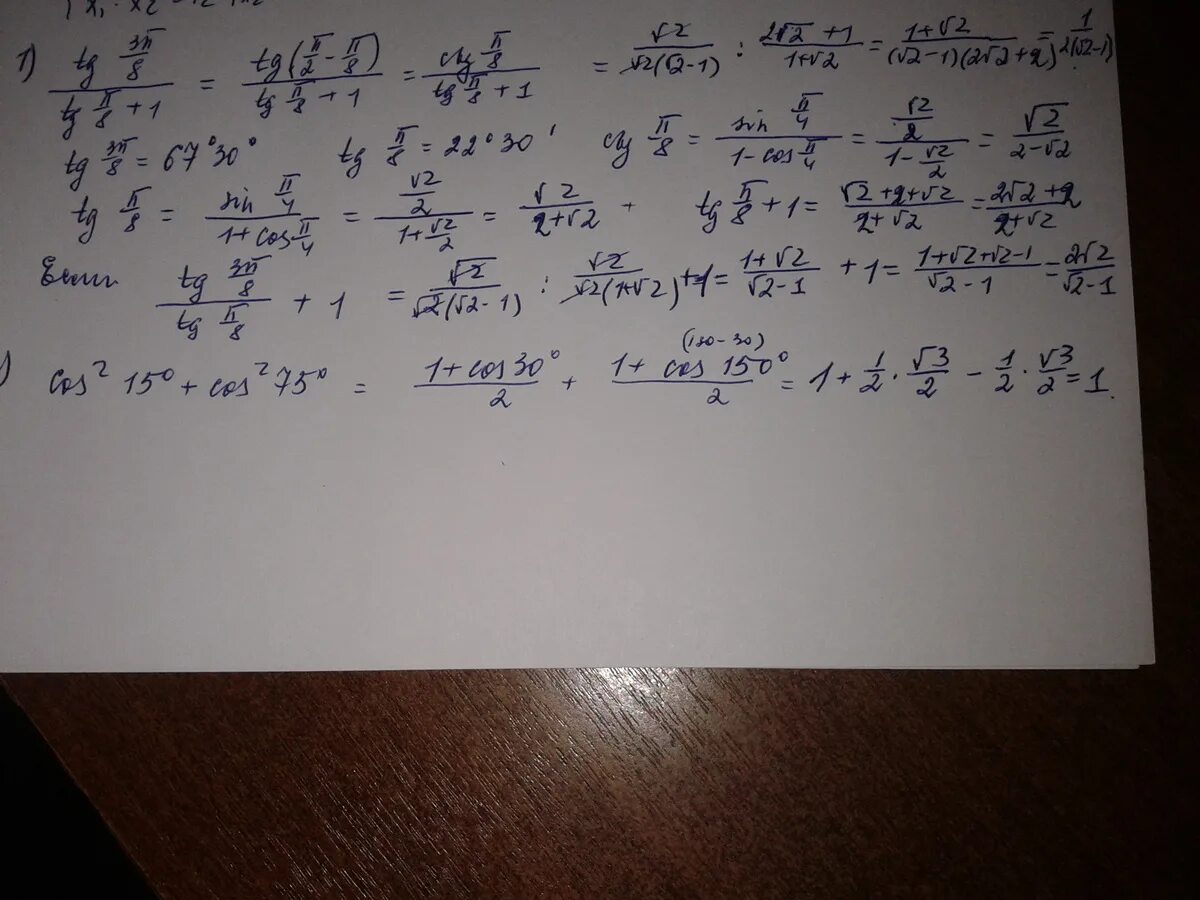 1) tg 3π/8 / (tg π/8 + 1) = tg(π/2 - π/8) / (tg π/8 + 1) = ctg π/8 / (tg π/8 + 1) = √2 / (√2(√2-1)) : (2√2+1) / (1+√2) = (1+√2) / ((√2-1)(2√2+2)) = 1 / (2(√2-1))
tg 3π/8 = 67°30° tg π/8 = 22°30' ctg π/8 = sin π/4 / (1-cos π/4) = (√2/2) / (1-√2/2) = √2 / (2-√2)
tg π/8 = sin π/4 / (1+cos π/4) = (√2/2) / (1+√2/2) = √2 / (2+√2) tg π/8 + 1 = (√2+2+√2) / (2+√2) = (2√2+2) / (2+√2)
Если tg 3π/8 / tg π/8 + 1 = √2 / (√2(√2-1)) : √2 / (√2(1+√2)) + 1 = (1+√2) / (√2-1) + 1 = (1+√2+√2-1) / (√2-1) = 2√2 / (√2-1)
(180-30)
) cos² 15° + cos² 75° = (1+cos 30°) / 2 + (1+cos 150°) / 2 = 1 + 1/2 · √3/2 - 1/2 · √3/2 = 1.